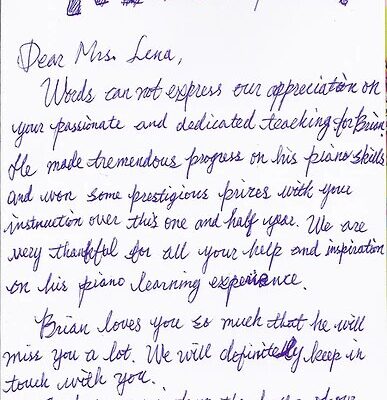 Dear Mrs. Lena,
Words can not express our appreciation on
your passionate and dedicated teaching for Brian.
He made tremendous progress on his piano skills
and won some prestigious prizes with your
instruction over this one and half year. We are
very thankful for all your help and inspiration
on his piano learning experience.
Brian loves you so much that he will
miss you a lot. We will definitely keep in
touch with you.